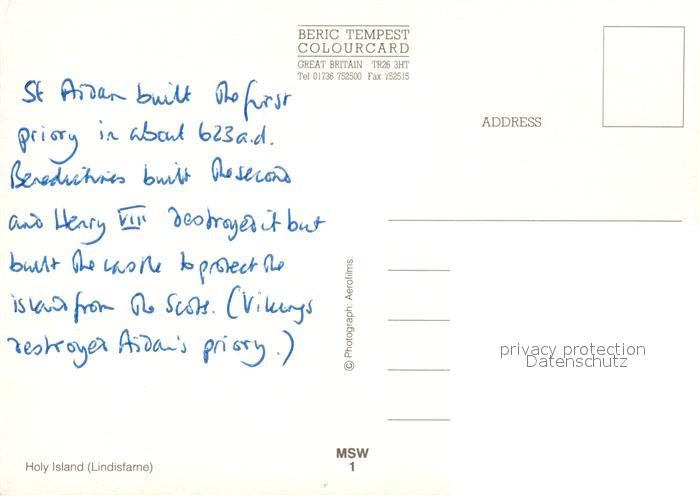 BERIC TEMPEST
COLOURCARD
GREAT BRITAIN · TR26 3HT
Tel 01736 752500 Fax 752515
St Aidan built the first
priory in about 623 a.d.
Benedictines built the second
and Henry VIII destroyed it but
built the castle to protect the
island from the Scots. (Vikings
destroyed Aidan's priory.)
ADDRESS
© Photograph: Aerofilms.
privacy protection
Datenschutz
Holy Island (Lindisfarne)
MSW
1